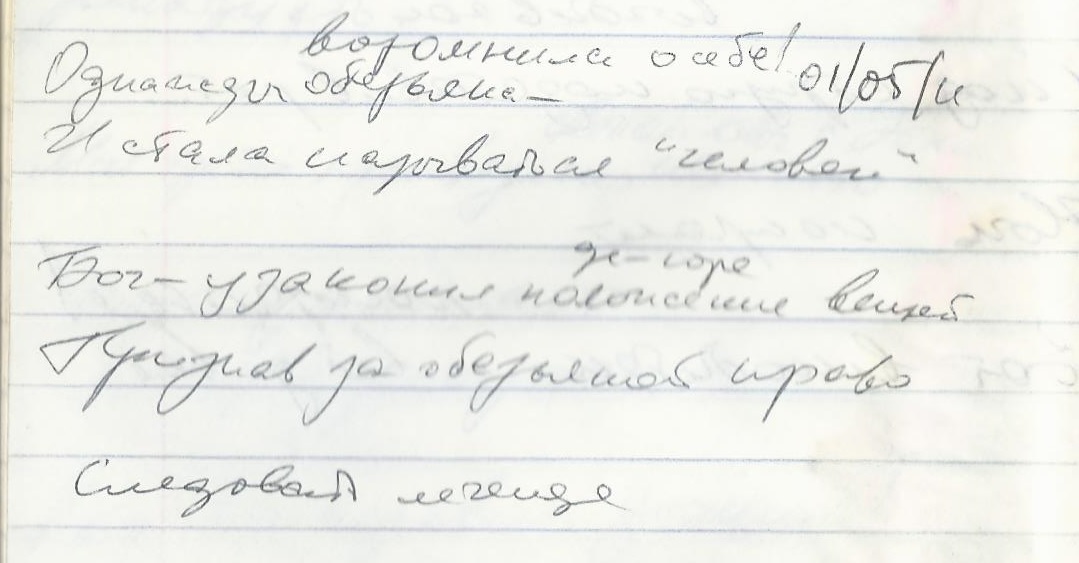 возомнила о себе! 01/05/11
Однажды обезьяна —
И стала называться "человек"
де-юре
Бог – узаконил положение вещей
Признав за обезьяной право
Следовать легенде